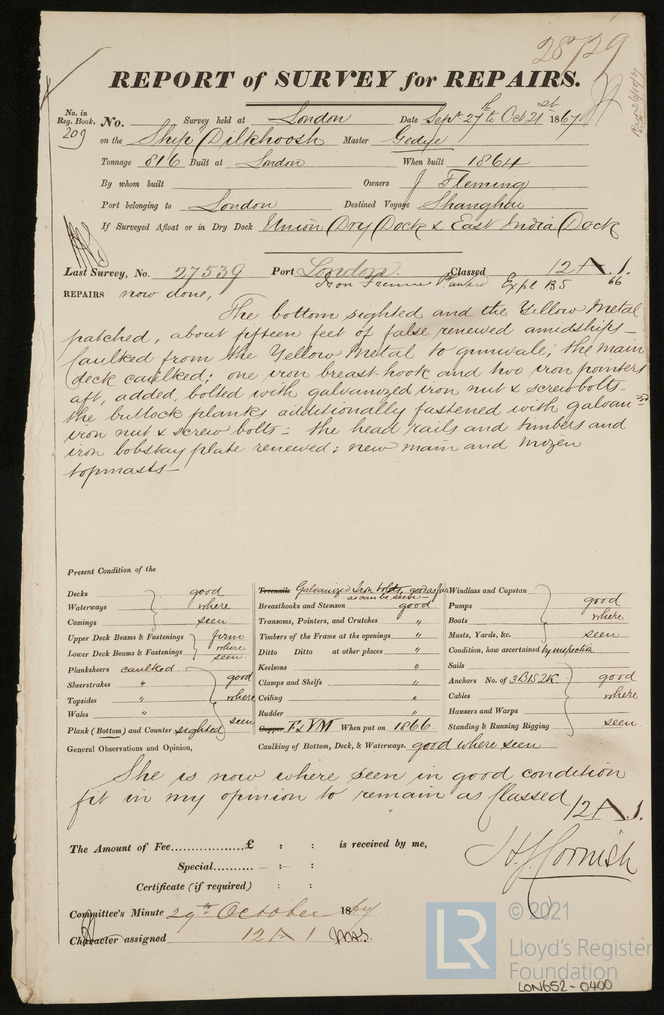 28729
REPORT of SURVEY for REPAIRS.
No. in Reg. Book. 209 No. Survey held at London Date Sept 27th to Oct 21st 1867
on the Ship "Dilkhoosh Master Gedye
Tonnage 816 Built at London When built 1864
By whom built Owners J Fleming
Port belonging to London Destined Voyage Shanghai
If Surveyed Afloat or in Dry Dock Union Dry Dock & East India Dock
Last Survey, No. 27539 Port London. Classed 12 A 1.
Iron Frames Planked Expl BS 66
REPAIRS now done,
The bottom sighted and the Yellow Metal
patched, about fifteen feet of false renewed amidships –
caulked from the Yellow Metal to gunwale; the main
deck caulked; one iron breast hook and two iron pointers
aft, added, bolted with galvanized iron nut & screw bolts –
the buttock planks additionally fastened with galvanzd
iron nut & screw bolts: the head rails and timbers and
iron bobstay plate renewed: new main and mizen
topmasts –
Present Condition of the
Decks good
Waterways where
Comings seen
Upper Deck Beams & Fastenings firm
Lower Deck Beams & Fastenings where seen
Planksheers caulked good
Sheerstrakes "
Topsides " where
Wales "
Plank (Bottom) and Counter sighted seen
Treenails Galvanized Iron bolts, good as far
as can be seen –
Breasthooks and Stemson good
Transoms, Pointers, and Crutches "
Timbers of the Frame at the openings "
Ditto Ditto at other places "
Keelsons "
Clamps and Shelfs "
Ceiling "
Rudder "
Copper F & YM When put on 1866
Caulking of Bottom, Deck, & Waterways. good where seen
Windlass and Capstan
Pumps good
Boats where
Masts, Yards, &c. seen
Condition, how ascertained by inspection
Sails
Anchors No. of 3B1S2K good
Cables where
Hausers and Warps
Standing & Running Rigging seen
General Observations and Opinion,
She is now where seen in good condition
fit in my opinion to remain as Classed 12 A 1.
The Amount of Fee...............£ : : is received by me,
Special.......... – : :
Certificate (if required) : :
H J Cornish
Committee's Minute 29th October 1867
Character assigned 12 A 1
© 2021
LR
Lloyd's Register
Foundation
LON652-0400